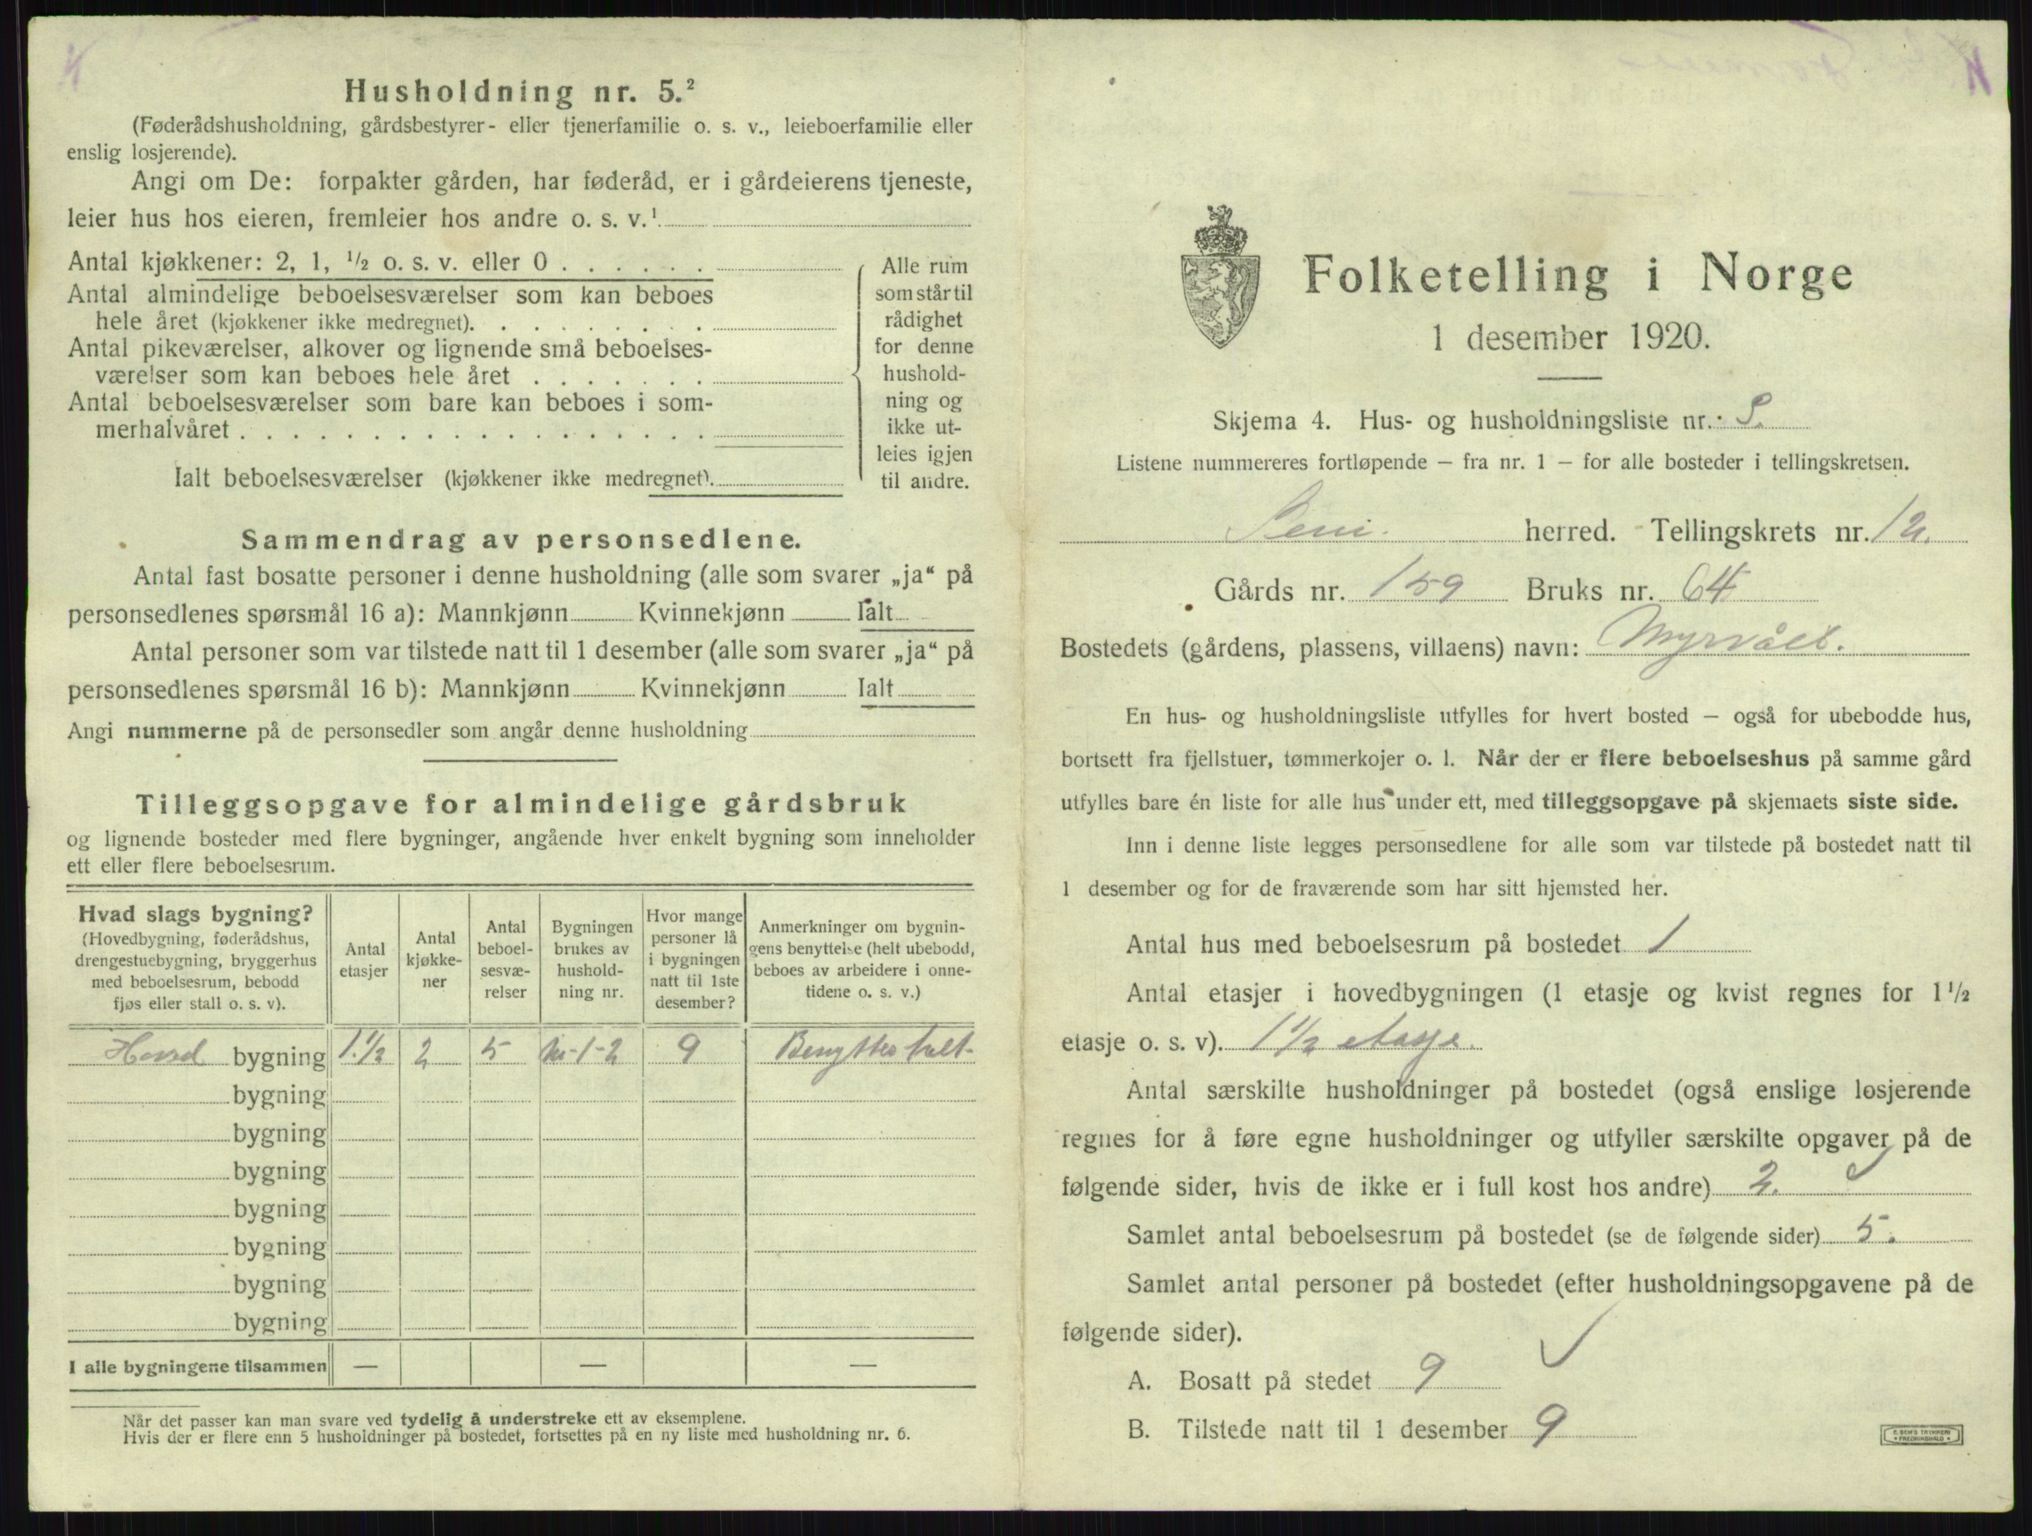 Husholdning nr. 5.²
(Føderådshusholdning, gårdsbestyrer- eller tjenerfamilie o. s. v., leieboerfamilie eller
enslig losjerende).
Angi om De: forpakter gården, har føderåd, er i gårdeierens tjeneste,
leier hus hos eieren, fremleier hos andre o. s. v.¹
Antal kjøkkener: 2, 1, ½ o. s. v. eller 0 . . . . . .
Antal almindelige beboelsesværelser som kan beboes
hele året (kjøkkener ikke medregnet). . . . . . . . .
Antal pikeværelser, alkover og lignende små beboelses-
værelser som kan beboes hele året . . . . . . .
Antal beboelsesværelser som bare kan beboes i som-
merhalvåret . . . . . . . . . . . . . . . . . .
Ialt beboelsesværelser (kjøkkener ikke medregnet).
Alle rum
som står til
rådighet
for denne
hushold-
ning og
ikke ut-
leies igjen
til andre.
Sammendrag av personsedlene.
Antal fast bosatte personer i denne husholdning (alle som svarer „ja“ på
personsedlenes spørsmål 16 a): Mannkjønn Kvinnekjønn Ialt
Antal personer som var tilstede natt til 1 desember (alle som svarer „ja“ på
personsedlenes spørsmål 16 b): Mannkjønn Kvinnekjønn Ialt
Angi nummerne på de personsedler som angår denne husholdning
Tilleggsopgave for almindelige gårdsbruk
og lignende bosteder med flere bygninger, angående hver enkelt bygning som inneholder
ett eller flere beboelsesrum.
Hvad slags bygning?
(Hovedbygning, føderådshus,
drengestuebygning, bryggerhus
med beboelsesrum, bebodd
fjøs eller stall o. s. v).
Antal
etasjer
Antal
kjøkke-
ner
Antal
beboel-
sesvæ-
relser
Bygningen
brukes av
hushold-
ning nr.
Hvor mange
personer lå
i bygningen
natt til 1ste
desember?
Anmerkninger om bygnin-
gens benyttelse (helt ubebodd,
beboes av arbeidere i onne-
tidene o. s. v.)
Hoved bygning 1.½ 2 5 Nr-1-2 9 Benyttes helt.
bygning
bygning
bygning
bygning
bygning
bygning
bygning
I alle bygningene tilsammen — — —
Når det passer kan man svare ved tydelig å understreke ett av eksemplene.
Hvis der er flere enn 5 husholdninger på bostedet, fortsettes på en ny liste med husholdning nr. 6.
Folketelling i Norge
1 desember 1920.
Skjema 4. Hus- og husholdningsliste nr. 5.
Listene nummereres fortløpende – fra nr. 1 – for alle bosteder i tellingskretsen.
Sem. herred. Tellingskrets nr. 12.
Gårds nr. 159 Bruks nr. 64
Bostedets (gårdens, plassens, villaens) navn:
En hus- og husholdningsliste utfylles for hvert bosted – også for ubebodde hus,
bortsett fra fjellstuer, tømmerkojer o. l. Når der er flere beboelseshus på samme gård
utfylles bare én liste for alle hus under ett, med tilleggsopgave på skjemaets siste side.
Inn i denne liste legges personsedlene for alle som var tilstede på bostedet natt til
1 desember og for de fraværende som har sitt hjemsted her.
Antal hus med beboelsesrum på bostedet 1
Antal etasjer i hovedbygningen (1 etasje og kvist regnes for 1 ½
etasje o. s. v). 1 ½ etasje.
Antal særskilte husholdninger på bostedet (også enslige losjerende
regnes for å føre egne husholdninger og utfyller særskilte opgaver på de
følgende sider, hvis de ikke er i full kost hos andre) 2.
Samlet antal beboelsesrum på bostedet (se de følgende sider) 5.
Samlet antal personer på bostedet (efter husholdningsopgavene på de
følgende sider).
A. Bosatt på stedet 9
B. Tilstede natt til 1 desember 9